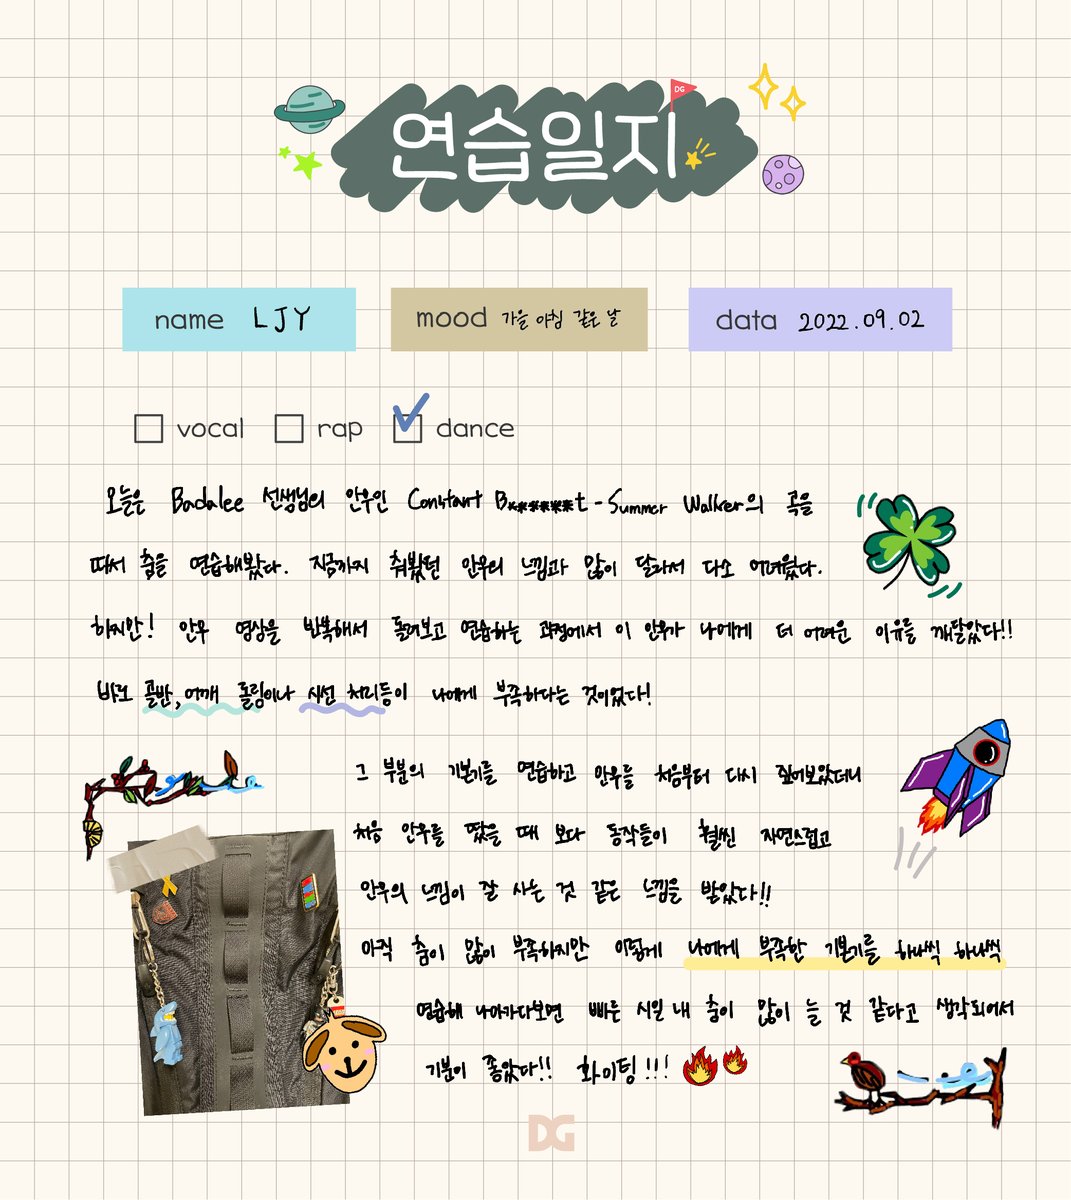 연습일지
DG
name LJY
mood 가을 아침 같은 날
data 2022.09.02
vocal rap dance
오늘은 Badalee 선생님의 안무인 Constant B******t - Summer Walker의 곡을
따서 춤을 연습해봤다. 지금까지 춰봤던 안무의 느낌과 많이 달라서 다소 어려웠다.
하지만! 안무 영상을 반복해서 돌려보고 연습하는 과정에서 이 안무가 나에게 더 어려운 이유를 깨달았다!!
바로 골반, 어깨 돌림이나 시선 처리등이 나에게 부족하다는 것이었다!
그 부분의 기본기를 연습하고 안무를 처음부터 다시 짚어보았더니
처음 안무를 땄을 때 보다 동작들이 훨씬 자연스럽고
안무의 느낌이 잘 사는 것 같은 느낌을 받았다!!
아직 춤이 많이 부족하지만 이렇게 나에게 부족한 기본기를 하나씩 하나씩
연습해 나아가다보면 빠른 시일 내 춤이 많이 늘 것 같다고 생각되어서
기분이 좋았다!! 화이팅!!!
DG